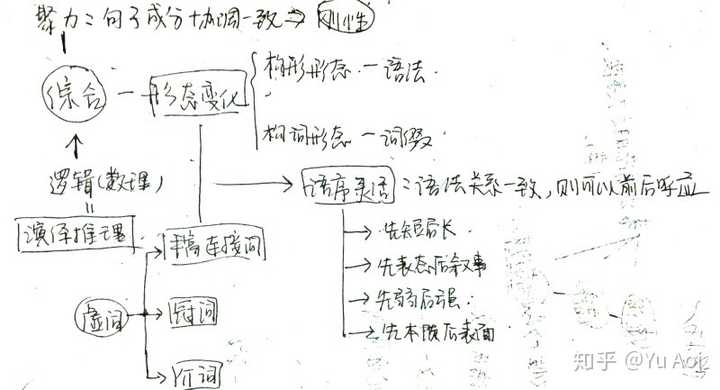 聚力：句子成分协调一致 ⇒ 刚性
综合 — 形态变化
构形形态 — 语法
构词形态 — 词缀
逻辑(数理)
语序灵活：语法关系一致，则可以前后呼应
演绎推理
连接词
先短后长
先表态后叙事
先弱后强
先本质后表面
虚词
冠词
介词
知乎 @Yu Aoi